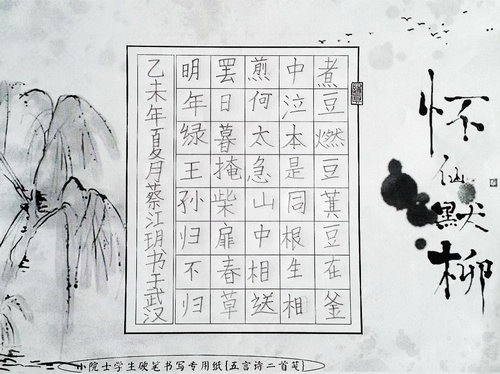 怀仙默柳
煮豆燃豆萁豆在釜
中泣本是同根生相
煎何太急山中相送
罢日暮掩柴扉春草
明年绿王孙归不归
乙未年夏月蔡江玥书于武汉
小院士学生硬笔书写专用纸{五言诗二首笺}